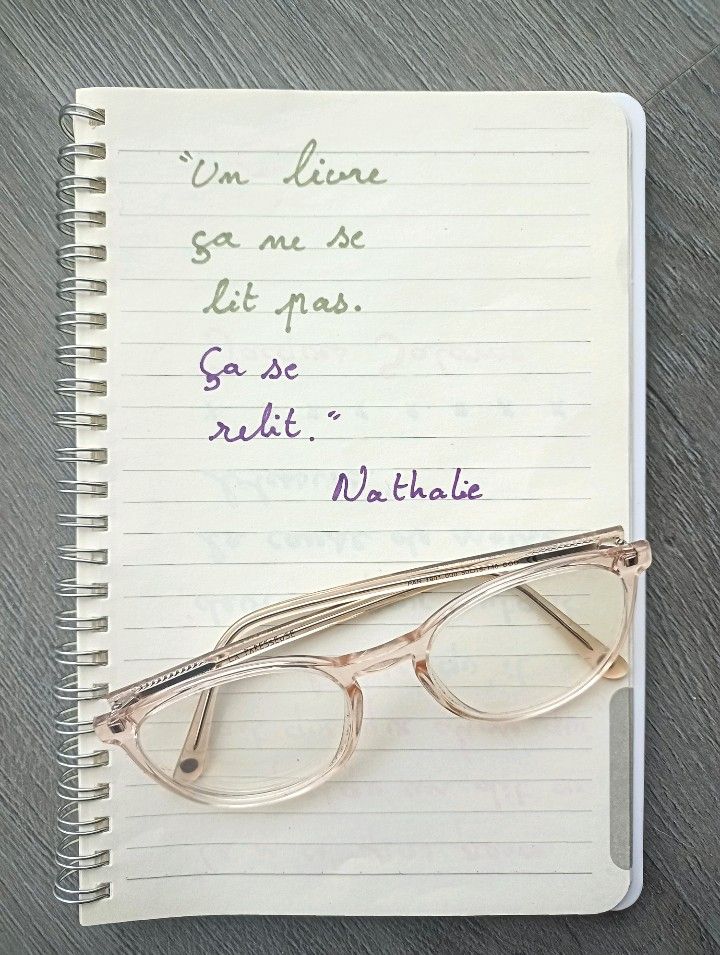 "Un livre
ça ne se
lit pas.
Ça se
relit."
Nathalie
LA PARESSEUSE